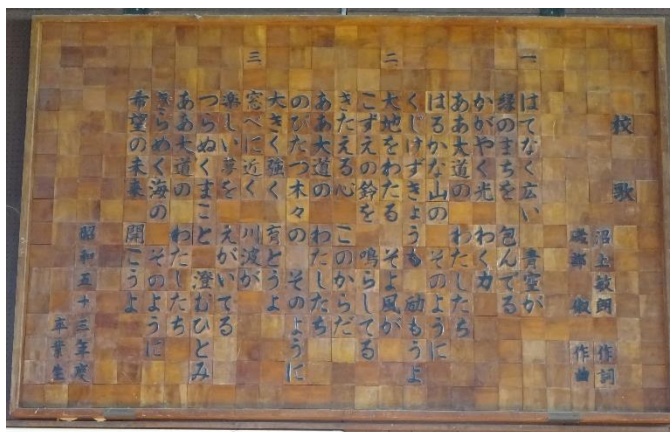 校歌
沼上敏朗 作詞
磯部 俶 作曲
一
はてなく広い 青空が
緑のまちを 包んでる
かがやく光 わく力
ああ大道の わたしたち
はるかな山の そのように
くじけずきょうも 励もうよ
二
大地をわたる そよ風が
こずえの鈴を 鳴らしてる
きたえる心 このからだ
ああ大道の わたしたち
のびたつ木々の そのように
大きく強く 育とうよ
三
窓べに近く 川波が
楽しい夢を えがいてる
つらぬくまこと 澄むひとみ
ああ大道の わたしたち
きらめく海の そのように
希望の未来 開こうよ
昭和五十三年度
卒業生